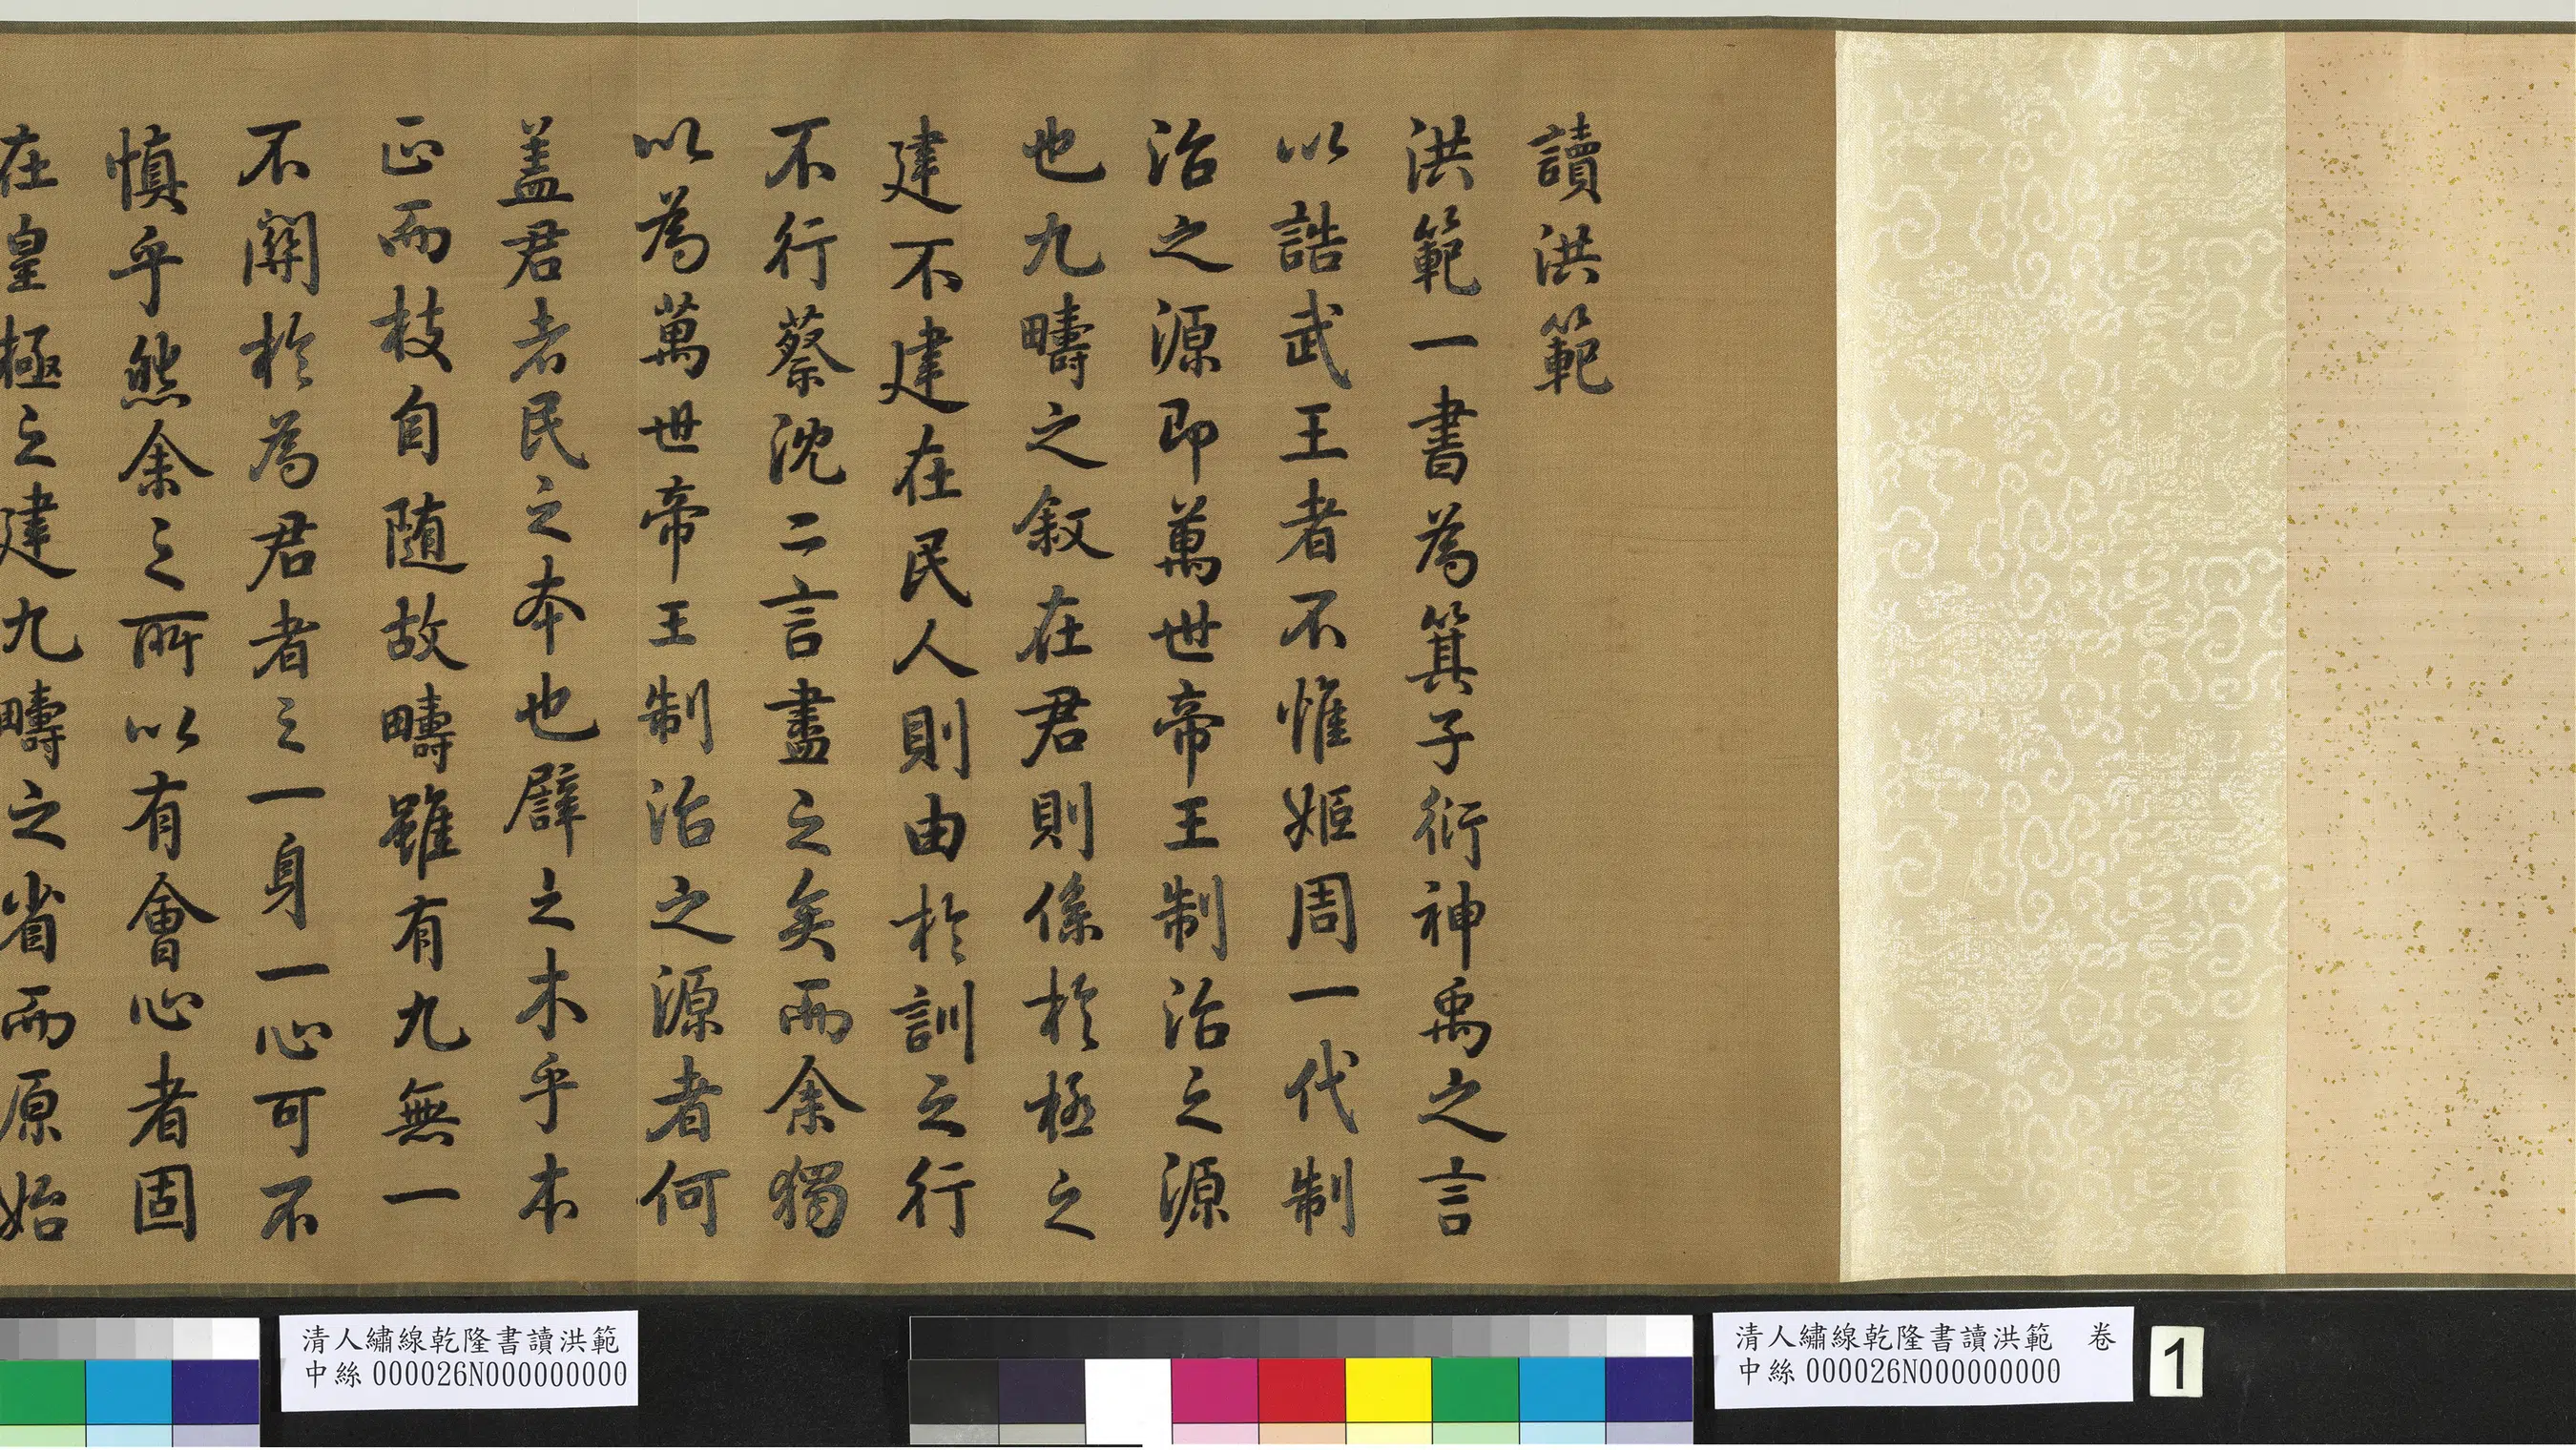 讀洪範
洪範一書為箕子衍神禹之言
以誥武王者不惟姬周一代制
治之源即萬世帝王制治之源
也九疇之叙在君則係於極之
建不建在民人則由於訓之行
不行蔡沈二言盡之矣而余獨
以為萬世帝王制治之源者何
盖君者民之本也譬之木乎本
正而枝自随故疇雖有九無一
不關於為君者之一身一心可不
慎乎然余之所以有會心者固
在皇極之建九疇之省而原始
清人繡線乾隆書讀洪範
中絲000026N000000000
清人繡線乾隆書讀洪範 卷
中絲000026N000000000
1